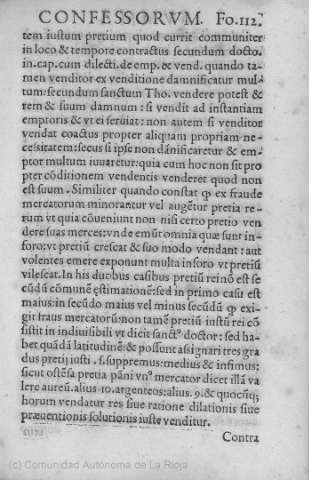 CONFESSORVM. Fo.112.
tem iustum pretium quod currit communiter
in loco & tempore contractus secundum docto.
in.cap.cum dilecti.de emp.& vend.quando ta-
men venditor ex venditione damnificatur mul-
tum:secundum sanctum Tho. vendere potest &
rem & suum damnum : si vendit ad instantiam
emptoris & vt ei seruiat : non autem si venditor
vendat coactus propter aliquam propriam ne-
cessitatem:secus si ipse non dānificaretur & em-
ptor multum iuuaretur:quia cum hoc non sit pro
pter cōditionem vendentis venderet quod non
est suum . Similiter quando constat ꝙ ex fraude
mercatorum minorantur vel augētur pretia re-
rum vt quia cōueniunt non nisi certo pretio ven
dere suas merces:vnde emūt omnia quæ sunt in-
foro:vt pretiū crescat & suo modo vendant : aut
volentes emere exponunt multa in foro vt pretiū
vilescat. In his duobus casibus pretiū reinō est se
cūdū cōmunē ęstimationē:sed in primo casu est
maius:in secūdo maius vel minus secūdū ꝙ exi-
git fraus mercatorū:non tamē pretiū iustū rei cō
sistit in indiuisibili vt dicit sanct⁹ doctor: sed ha-
bet quādā latitudinē:& possunt assignari tres gra
dus pretij iusti . s.supremus:medius & infimus:
sicut ostēsa pretia pāni vn⁹ mercator dicet illā va
lere aureū.alius.10.argenteos:alius.9.& quocūq;
horum vendatur res siue ratione dilationis siue
præuentionis solutionis iuste venditur.
Contra
(c) Comunidad Autónoma de La Rioja